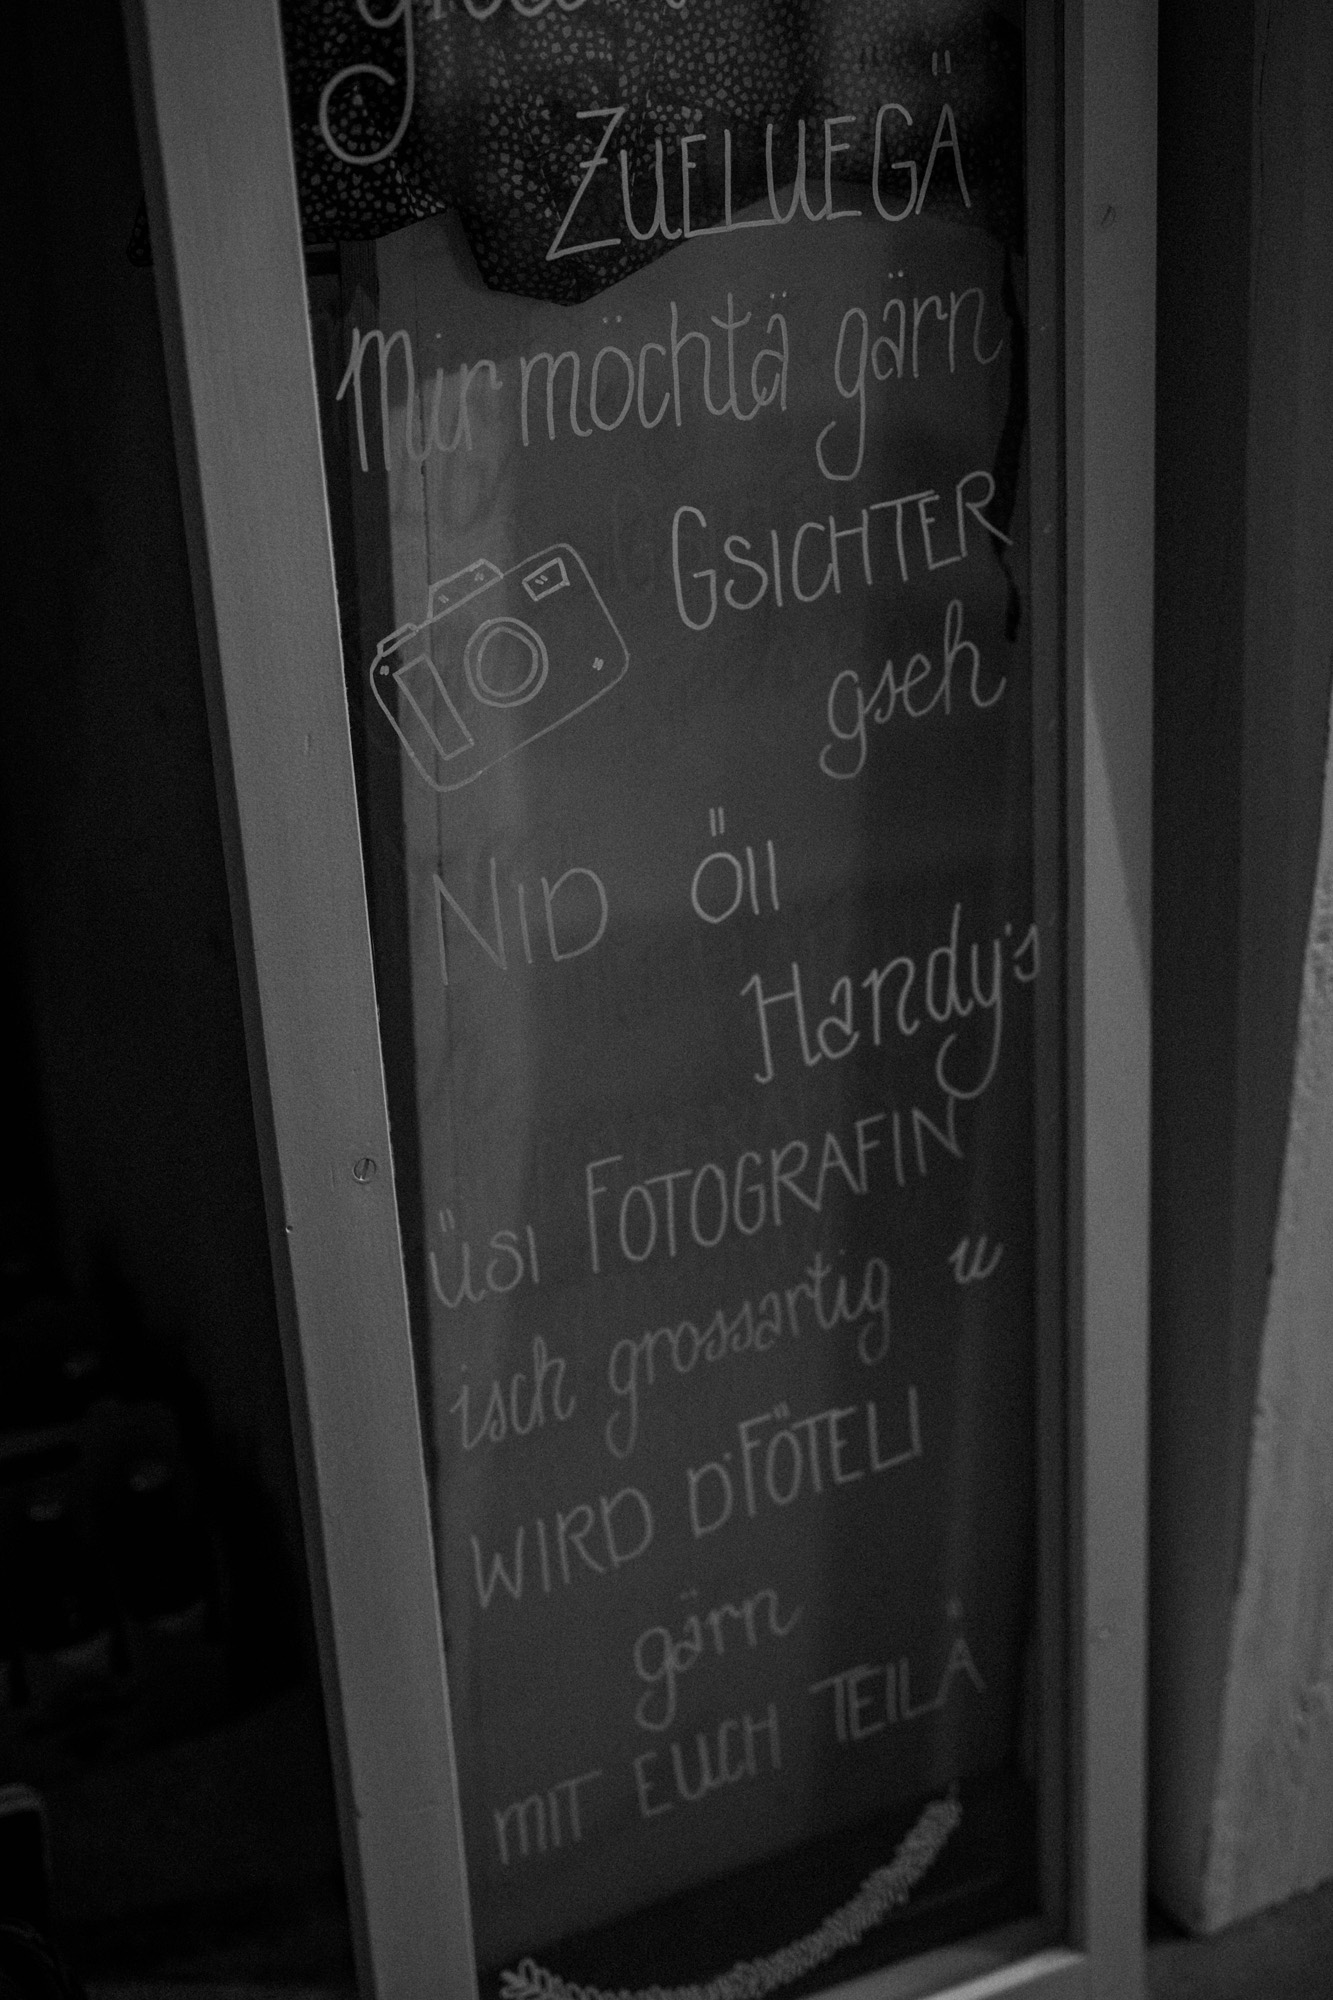 ZUELUEGÄ
Mir möchtä gärn
GSICHTER
gseh
NID öll
Handy's
üSI FOTOGRAFIN
isch grossartig u
WIRD D'FÖTELI
gärn
MIT EUCH TEILÄ